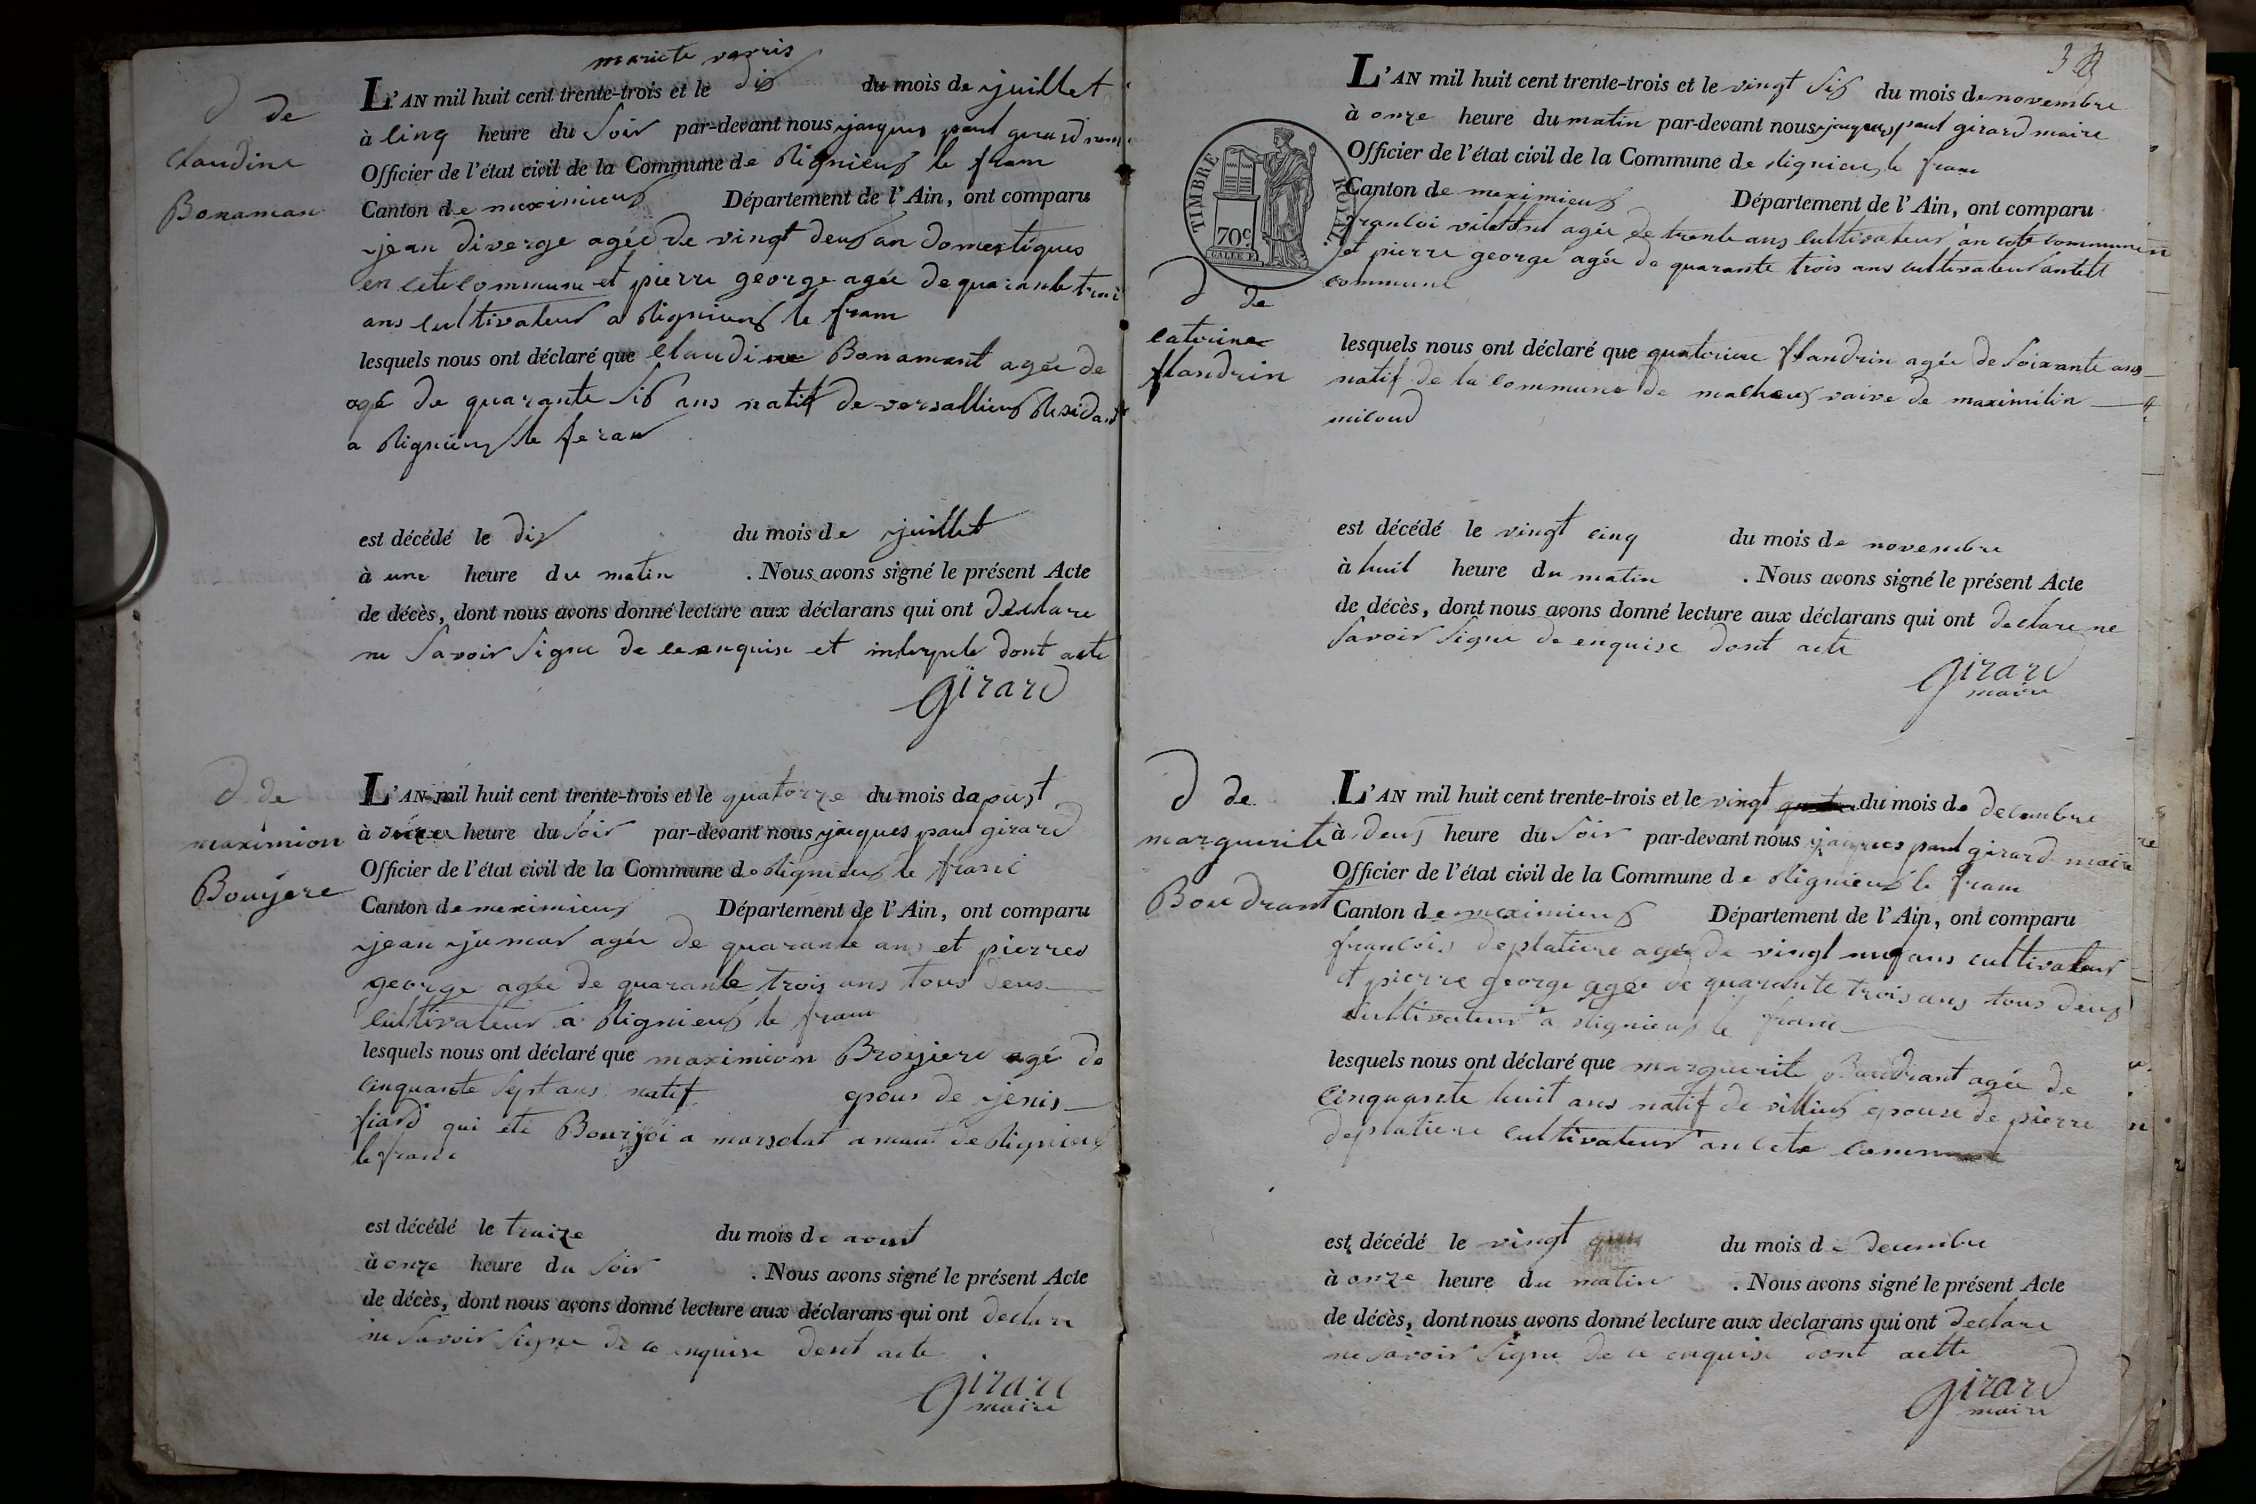 mariete varris
d de
Claudine
Bonaman
L'AN mil huit cent trente-trois et le dix du mois de juillet
à cinq heure du soir par-devant nous jacques paul girard
Officier de l'état civil de la Commune de Rignieux le fran
Canton de meximieux Département de l'Ain, ont comparu
jean diverge agée de vingt deux an domestiques
en cete commune et pierre george agée de quarante troi
ans cultivateur a Rignieux le fran
lesquels nous ont déclaré que Claudine Bonamant agée de
agé de quarante six ans natif de versallieux Residant
a Rignieux le feran
est décédé le dix du mois de juillet
à une heure du matin . Nous avons signé le présent Acte
de décès, dont nous avons donné lecture aux déclarans qui ont déclare
ne savoir signe de ce enquise et interpele dont acte
Girard
d de
maximion
Bouyere
L'AN mil huit cent trente-trois et le quatorze du mois d aoust
à heure du soir par-devant nous jacques paul girard
Officier de l'état civil de la Commune de Rignieux le franc
Canton de meximieux Département de l'Ain, ont comparu
jean jumar agée de quarante ans et pierres
george agée de quarante trois ans tous deus
cultivateur a Rignieux le fran
lesquels nous ont déclaré que maximion Broijiere agé de
cinquante sept ans natif epous de jenis
fiard qui eté a amaut de Rignieux
le franc
est décédé le traize du mois de aoust
à onze heure du soir . Nous avons signé le présent Acte
de décès, dont nous avons donné lecture aux déclarans qui ont declare
ne savoir signe de ce enquise dont acte
Girard
maire
3
TIMBRE ROYAL.
70c
L'AN mil huit cent trente-trois et le vingt six du mois de novembre
à onze heure du matin par-devant nous jacques paul girard maire
Officier de l'état civil de la Commune de Rignieux le fran
Canton de meximieux Département de l'Ain, ont comparu
francoi agée de trente ans cultivateur an cete commune
et pierre george agée de quarante trois ans cultivateur
commune
d de
catrine
flandrin
lesquels nous ont déclaré que quatriene flandrin agée de soixante ans
natif de la commune de vaive de maximilin
miloud
est décédé le vingt cinq du mois de novembre
à huit heure du matin . Nous avons signé le présent Acte
de décès, dont nous avons donné lecture aux déclarans qui ont declare ne
savoir signe de enquise dont acte
Girard
maire
d de
marguerite
Boudrant
L'AN mil huit cent trente-trois et le vingt du mois de decembre
à deux heure du soir par-devant nous jacques paul girard maire
Officier de l'état civil de la Commune de Rignieux le fran
Canton de meximieux Département de l'Ain, ont comparu
francois deplatiere agée de vingt neuf ans cultivateur
et pierre george agée de quarante trois ans tous deux
cultivateur a Rignieux le franc
lesquels nous ont déclaré que marguerite Baudrant agée de
cinquante huit ans natif de villieux epouse de pierre
deplatiere cultivateur an cete commune
est décédé le vingt du mois de decembre
à onze heure du matin . Nous avons signé le présent Acte
de décès, dont nous avons donné lecture aux declarans qui ont declare
ne savoir signe de ce enquise dont actte
Girard
maire